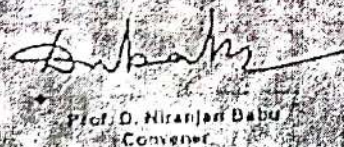 Prof. D. Niranjan Babu
Convener